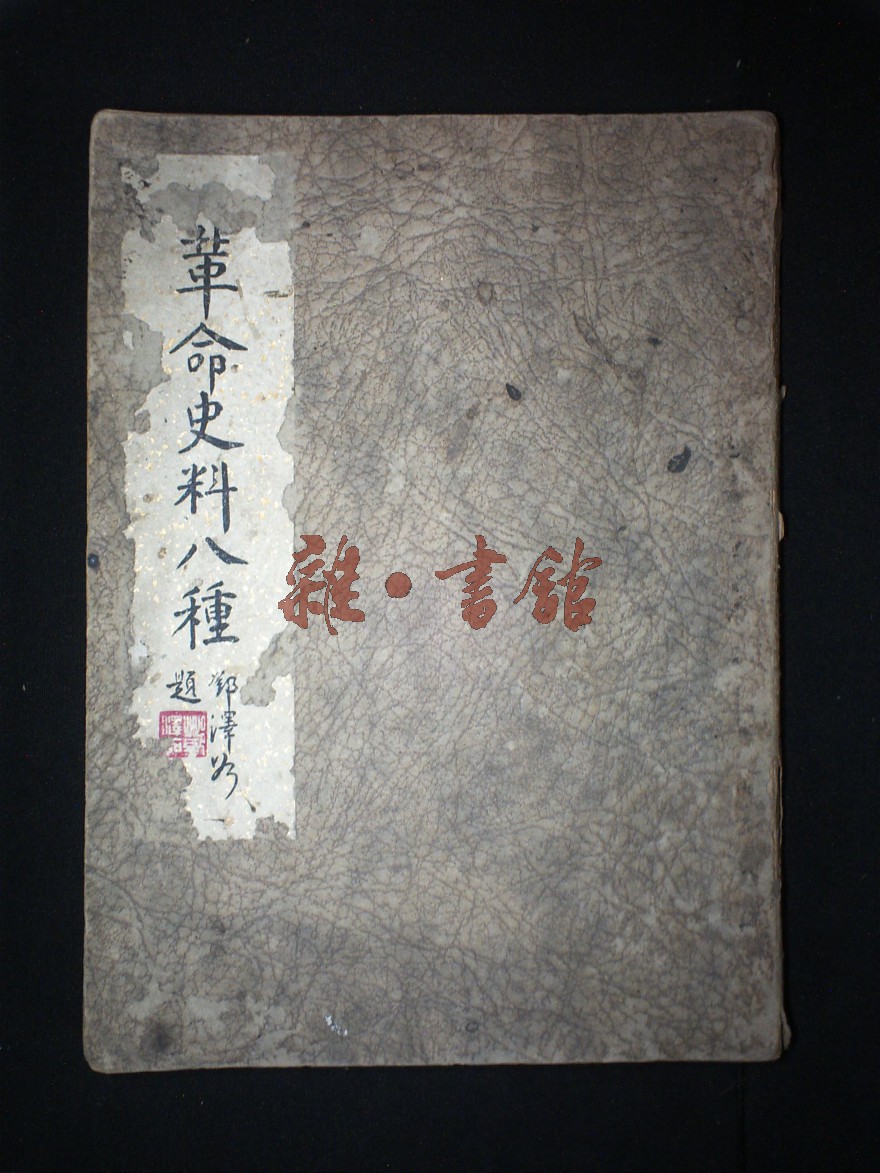 革命史料八種
鄧澤如
題
雜·書館